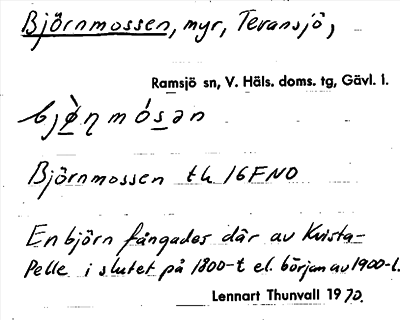 Björnmossen, myr, Tevansjö,
Ramsjö sn, V. Häls. doms. tg, Gävl. l.
bjø̀ṇ mósən
Björnmossen tk 16F NO
En björn fångades där av Kvista-
Pelle i slutet på 1800-t el. början av 1900-t.
Lennart Thunvall 1970.